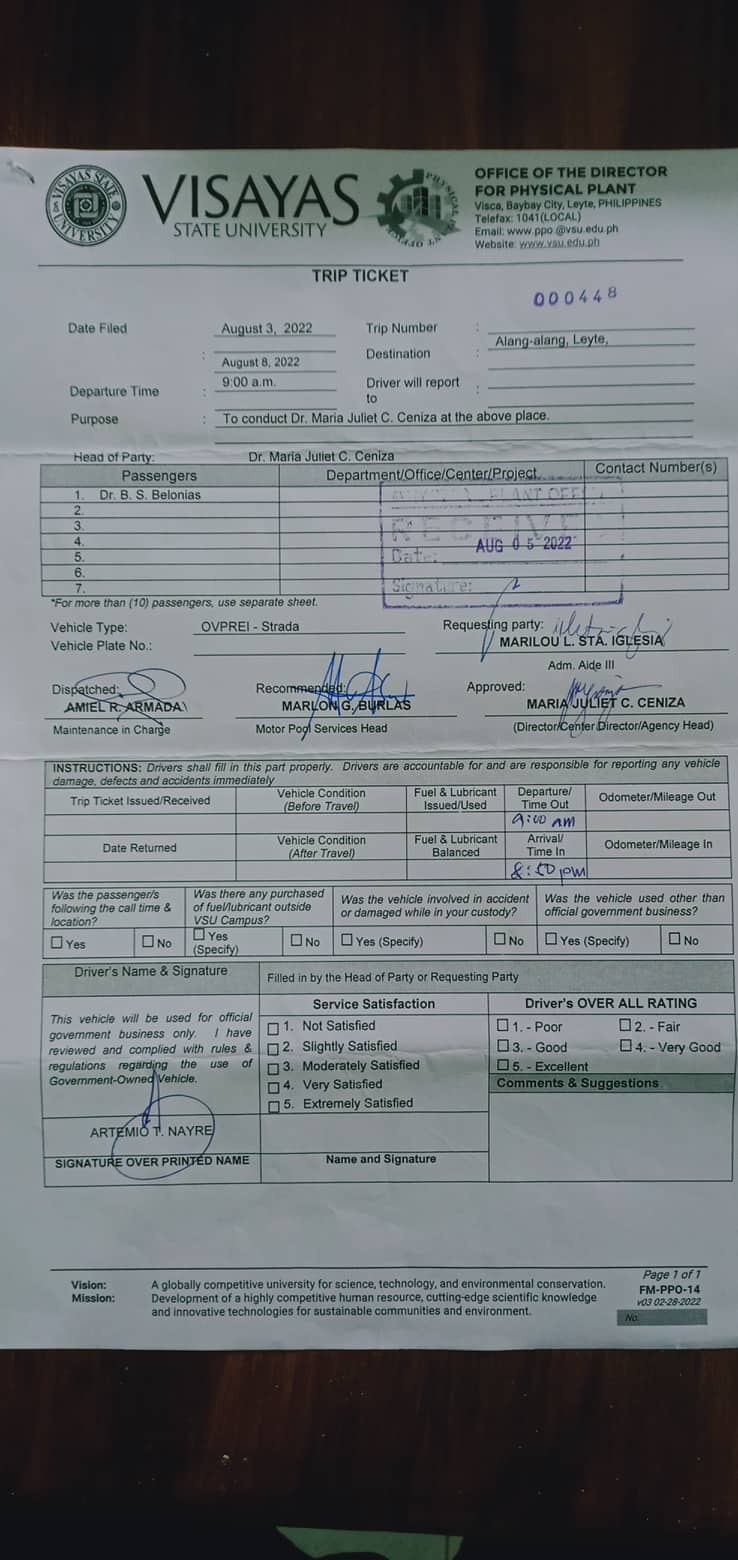 VISAYAS STATE UNIVERSITY
VISAYAS
STATE UNIVERSITY
PHYSICAL
OFFICE OF THE DIRECTOR
FOR PHYSICAL PLANT
Visca, Baybay City, Leyte, PHILIPPINES
Telefax: 1041(LOCAL)
Email: www.ppo @vsu.edu.ph
Website: www.vsu.edu.ph
TRIP TICKET
000448
Date Filed August 3, 2022 Trip Number :
: August 8, 2022 Destination : Alang-alang, Leyte,
Departure Time : 9:00 a.m. Driver will report to :
Purpose : To conduct Dr. Maria Juliet C. Ceniza at the above place.
Head of Party: Dr. Maria Juliet C. Ceniza
Passengers Department/Office/Center/Project Contact Number(s)
1. Dr. B. S. Belonias
2.
3.
4.
5.
6.
7.
PLANT OFF
RECEIVE
Date: AUG 05 2022
Signature:
*For more than (10) passengers, use separate sheet.
Vehicle Type: OVPREI - Strada Requesting party:
Vehicle Plate No.: MARILOU L. STA. IGLESIA
Adm. Aide III
Dispatched: Recommended: Approved:
AMIEL R. ARMADA MARLON G. BURLAS MARIA JULIET C. CENIZA
Maintenance in Charge Motor Pool Services Head (Director/Center Director/Agency Head)
INSTRUCTIONS: Drivers shall fill in this part properly. Drivers are accountable for and are responsible for reporting any vehicle
damage, defects and accidents immediately
Trip Ticket Issued/Received Vehicle Condition (Before Travel) Fuel & Lubricant Issued/Used Departure/ Time Out Odometer/Mileage Out
9:00 am
Date Returned Vehicle Condition (After Travel) Fuel & Lubricant Balanced Arrival/ Time In Odometer/Mileage In
8:50 pm
Was the passenger/s following the call time & location? Was there any purchased of fuel/lubricant outside VSU Campus? Was the vehicle involved in accident or damaged while in your custody? Was the vehicle used other than official government business?
☐ Yes ☐ No ☐ Yes (Specify) ☐ No ☐ Yes (Specify) ☐ No ☐ Yes (Specify) ☐ No
Driver's Name & Signature Filled in by the Head of Party or Requesting Party
This vehicle will be used for official
government business only. I have
reviewed and complied with rules &
regulations regarding the use of
Government-Owned Vehicle.
ARTEMIO T. NAYRE
SIGNATURE OVER PRINTED NAME
Service Satisfaction
☐ 1. Not Satisfied
☐ 2. Slightly Satisfied
☐ 3. Moderately Satisfied
☐ 4. Very Satisfied
☐ 5. Extremely Satisfied
Name and Signature
Driver's OVER ALL RATING
☐ 1. - Poor ☐ 2. - Fair
☐ 3. - Good ☐ 4. - Very Good
☐ 5. - Excellent
Comments & Suggestions
Vision: A globally competitive university for science, technology, and environmental conservation.
Mission: Development of a highly competitive human resource, cutting-edge scientific knowledge
and innovative technologies for sustainable communities and environment.
Page 1 of 1
FM-PPO-14
v03 02-28-2022
No.